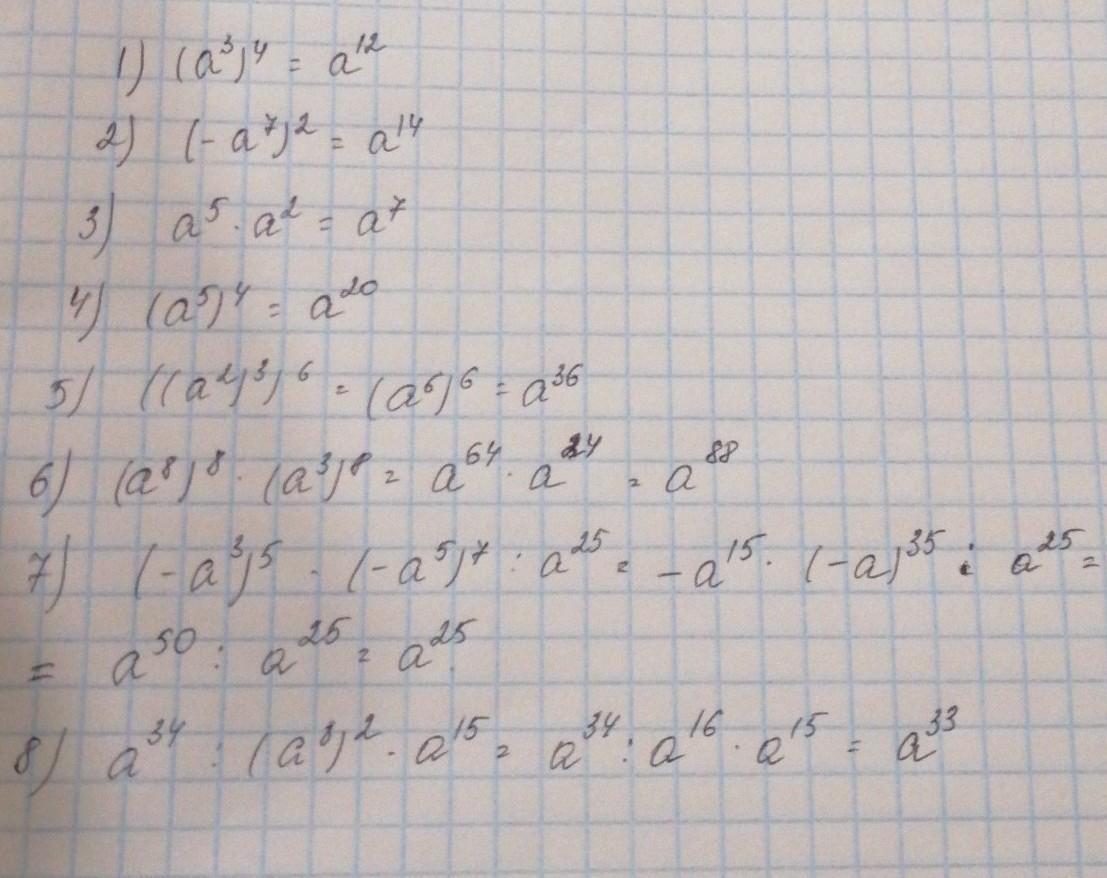 1) (a³)⁴ = a¹²
2) (-a⁷)² = a¹⁴
3) a⁵ · a² = a⁷
4) (a⁵)⁴ = a²⁰
5) ((a²)³)⁶ = (a⁶)⁶ = a³⁶
6) (a⁸)⁸ · (a³)⁸ = a⁶⁴ · a²⁴ = a⁸⁸
7) (-a³)⁵ · (-a⁵)⁷ : a²⁵ = -a¹⁵ · (-a)³⁵ : a²⁵ =
= a⁵⁰ : a²⁵ = a²⁵
8) a³⁴ : (a⁸)² · a¹⁵ = a³⁴ : a¹⁶ · a¹⁵ = a³³